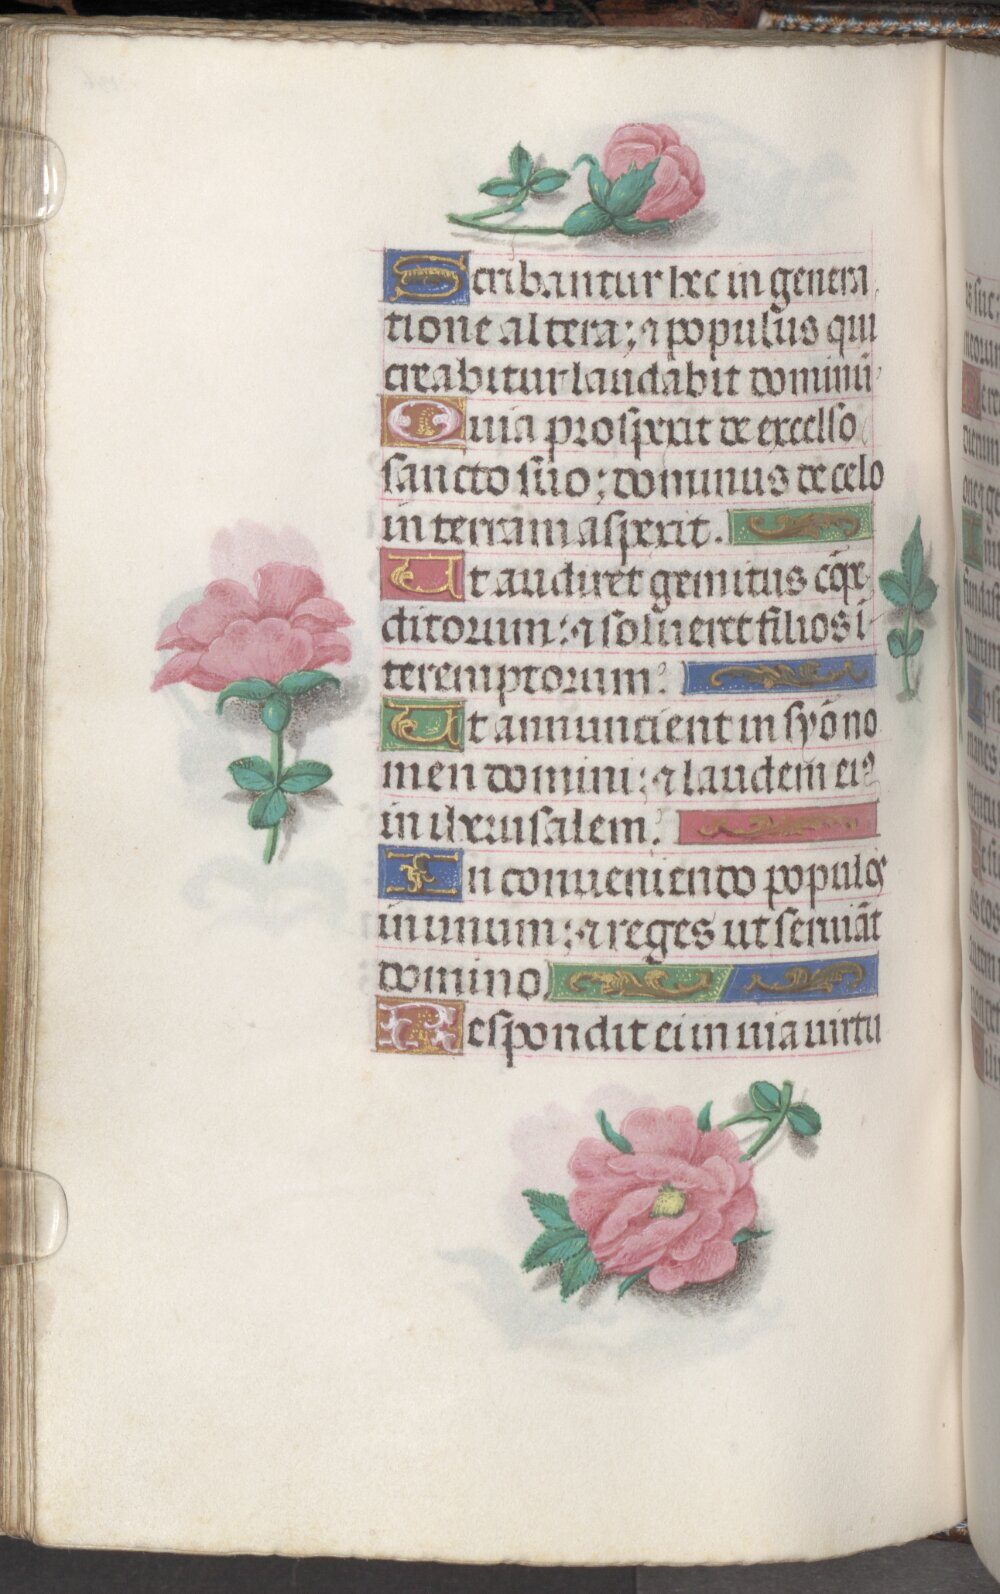 Scribantur hec in genera
tione altera: ⁊ populus qui
creabitur laudabit dominū
Quia prospexit de excelso
sancto suo: dominus de celo
in terram aspexit.
Ut audiret gemitus cōpe
ditorum: ⁊ solueret filios ī
teremptorum.
Ut annuncient in syōno
men domini: ⁊ laudem eiꝰ
in iherusalem.
In conueniendo populos
in unum: ⁊ reges ut seruiāt
domino.
Respondit ei in uia uirtu